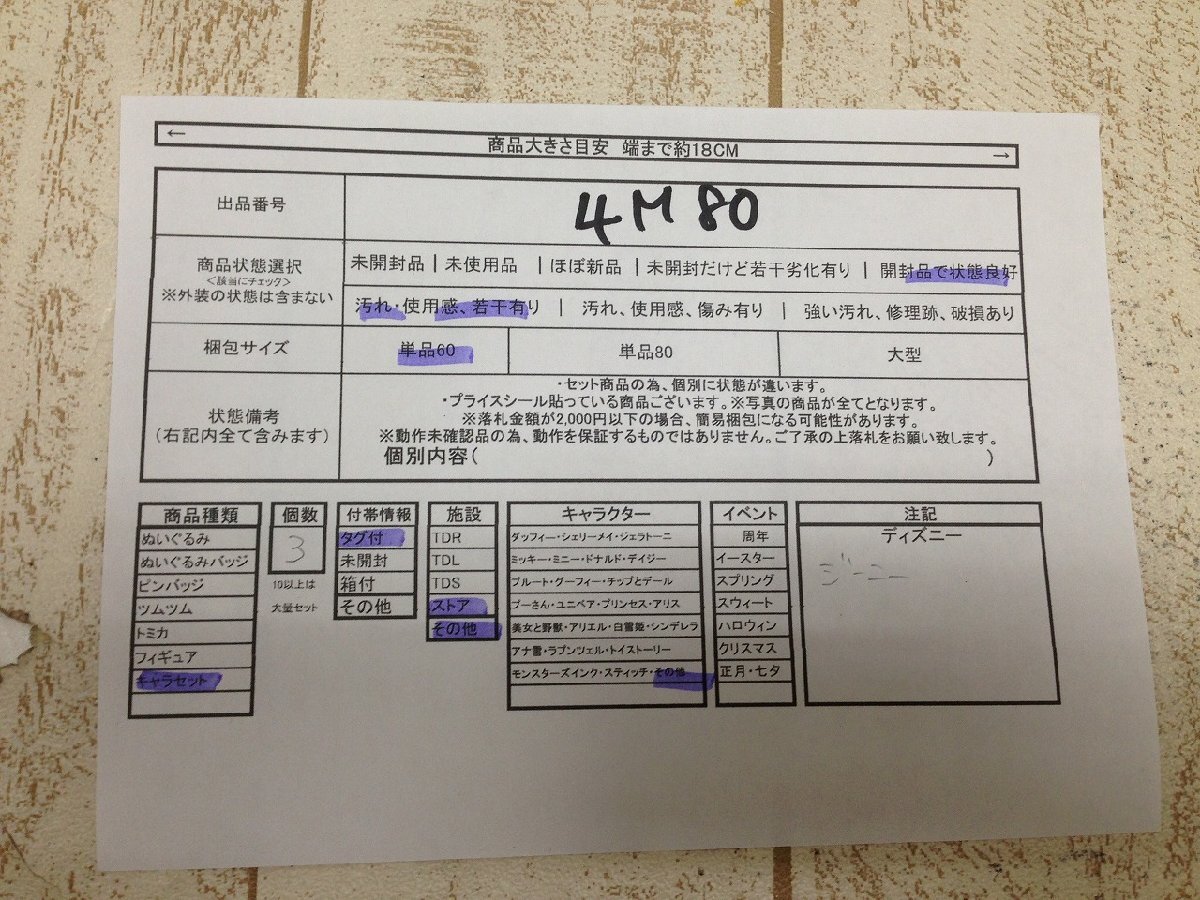 ←
商品大きさ目安 端まで約18CM
→
出品番号
4M80
商品状態選択
<該当にチェック>
※外装の状態は含まない
未開封品 | 未使用品 | ほぼ新品 | 未開封だけど若干劣化有り | 開封品で状態良好
汚れ・使用感、若干有り | 汚れ、使用感、傷み有り | 強い汚れ、修理跡、破損あり
梱包サイズ
単品60
単品80
大型
状態備考
(右記内全て含みます)
・セット商品の為、個別に状態が違います。
・プライスシール貼っている商品ございます。※写真の商品が全てとなります。
※落札金額が2,000円以下の場合、簡易梱包になる可能性があります。
※動作未確認品の為、動作を保証するものではありません。ご了承の上落札をお願い致します。
個別内容( )
商品種類
ぬいぐるみ
ぬいぐるみバッジ
ピンバッジ
ツムツム
トミカ
フィギュア
キャラセット
個数
3
10以上は
大量セット
付帯情報
タグ付
未開封
箱付
その他
施設
TDR
TDL
TDS
ストア
その他
キャラクター
ダッフィー・シェリーメイ・ジェラトーニ
ミッキー・ミニー・ドナルド・デイジー
プルート・グーフィー・チップとデール
プーさん・ユニベア・プリンセス・アリス
美女と野獣・アリエル・白雪姫・シンデレラ
アナ雪・ラプンツェル・トイストーリー
モンスターズインク・スティッチ・その他
イベント
周年
イースター
スプリング
スウィート
ハロウィン
クリスマス
正月・七夕
注記
ディズニー
ジーニー